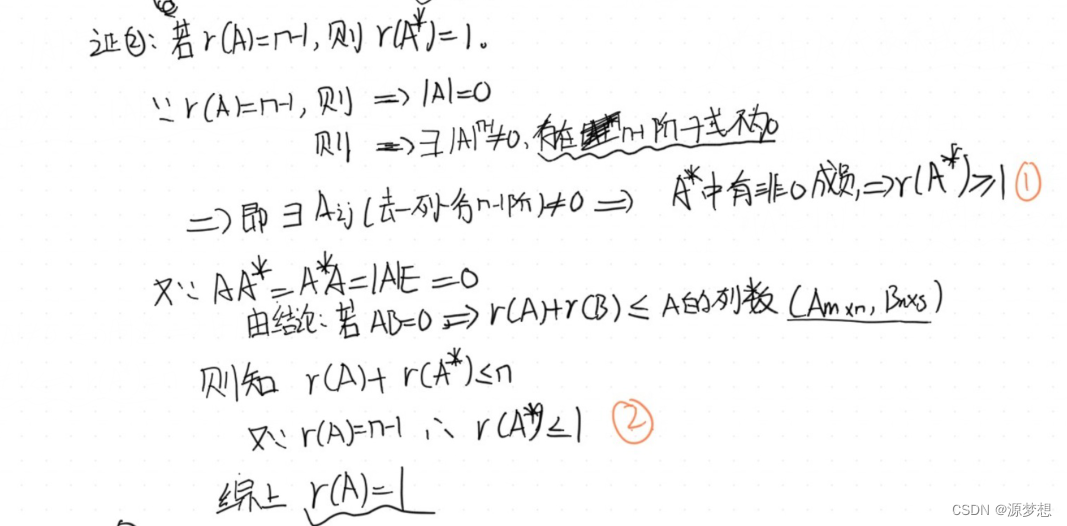 证②: 若r(A)=n-1, 则 r(A*)=1。
∵ r(A)=n-1, 则 => |A|=0
则 => ∃|A|ⁿ⁻¹≠0, 存在n-1阶子式不为0
=> 即 ∃ Aij (去一列一行n-1阶)≠0 => A*中有非0成员, => r(A*)≥1 ①
又∵ AA*=A*A=|A|E=0
由结论: 若 AB=0 => r(A)+r(B) ≤ A的列数 (Am×n, Bn×s)
则知 r(A)+r(A*)≤n
又∵ r(A)=n-1 ∴ r(A*)≤1 ②
综上 r(A)=1
CSDN @源梦想